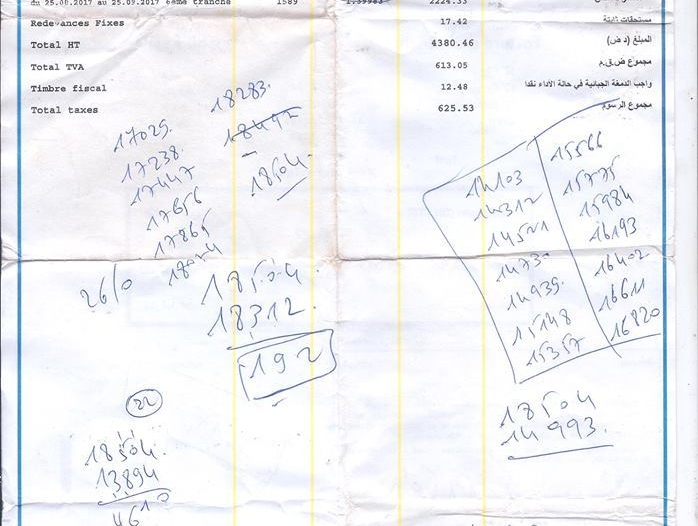 du 25.08.2017 au 25.09.2017 6ème tranche 1589 1.39983 2224.33
Redevances Fixes 17.42 مستحقات ثابتة
Total HT 4380.46 المبلغ (د ض)
Total TVA 613.05 مجموع ض.ق.م
Timbre fiscal 12.48 واجب الدمغة الجبائية في حالة الأداء نقدا
Total taxes 625.53 مجموع الرسوم
17029.
17238.
17447
17656
17865
18074
18283.
18492
18504.
2610
18504.
18312.
192
22
18504.
13894
4610
14103
14312
14521
14730
14939.
15148
15357
15566
15775
15984
16193
16402
16611
16820
18504
14993.